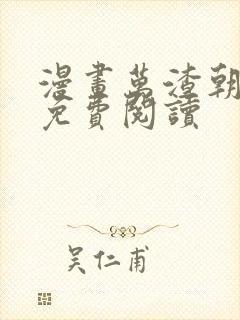 漫畫萬渣朝
免費閱讀
吴仁甫